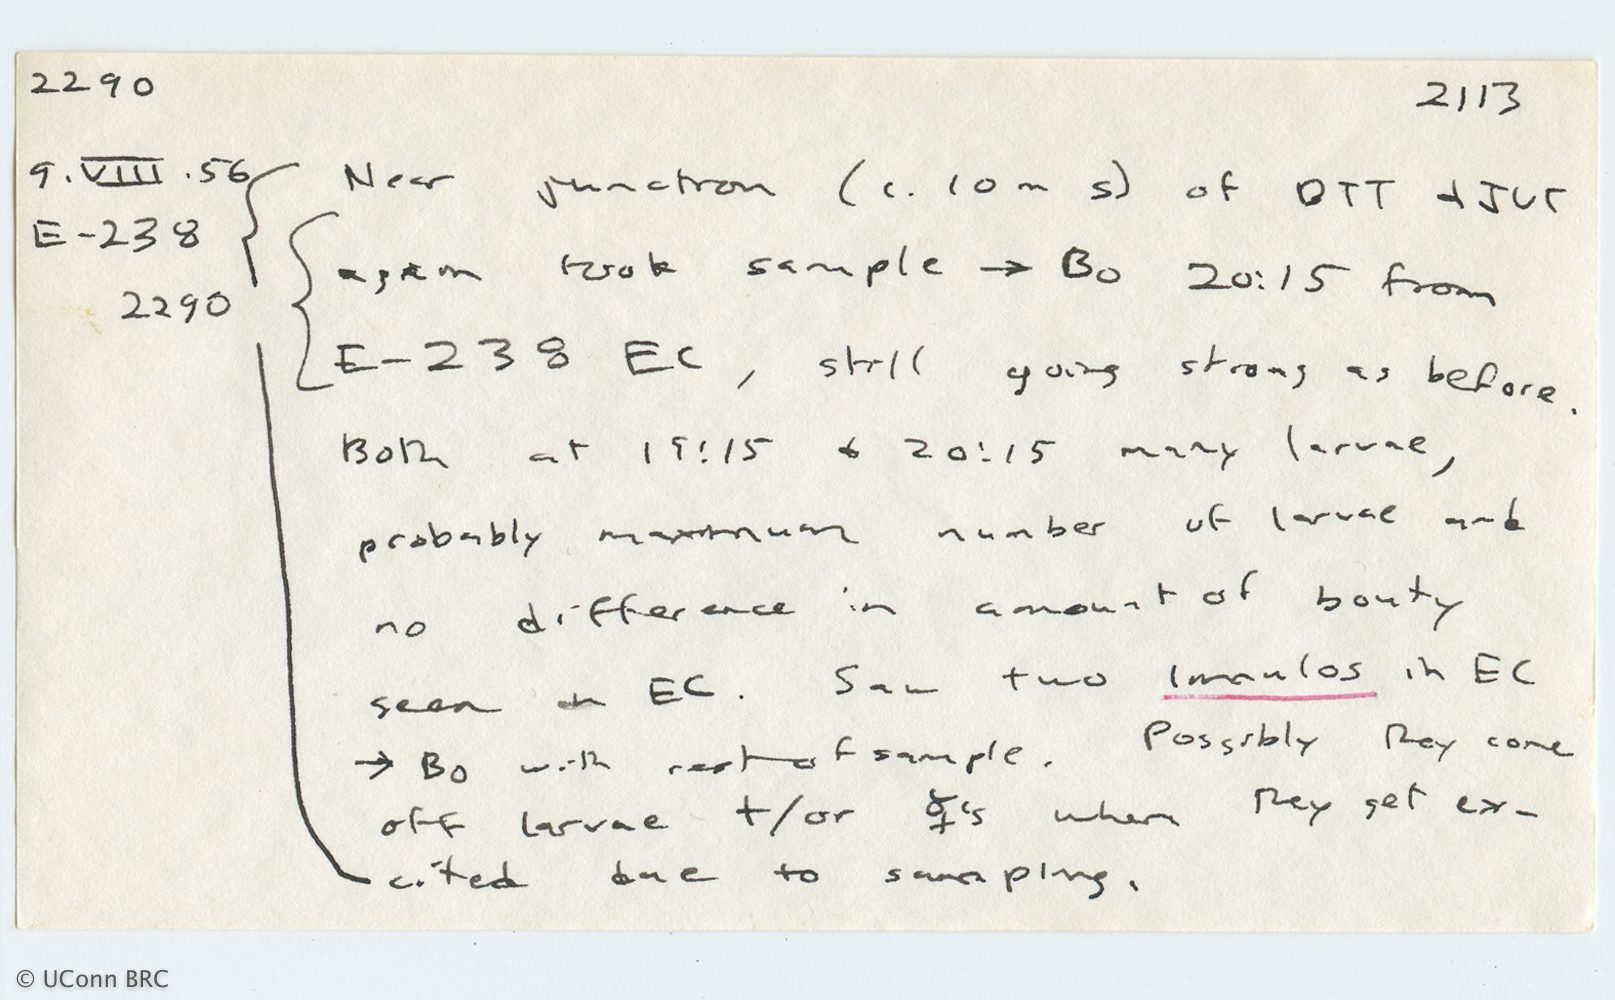 2290
2113
9.VIII.56
E-238
2290
Near junction (c. 10 m s) of DTT + JVT
again took sample → Bo 20:15 from
E-238 EC, still going strong as before.
Both at 19:15 & 20:15 many larvae,
probably maximum number of larvae and
no difference in amount of booty
seen in EC. Saw two limulos in EC
→ Bo with rest of sample. Possibly they come
off larvae +/or ☿'s when they get ex-
cited due to sampling.
© UConn BRC